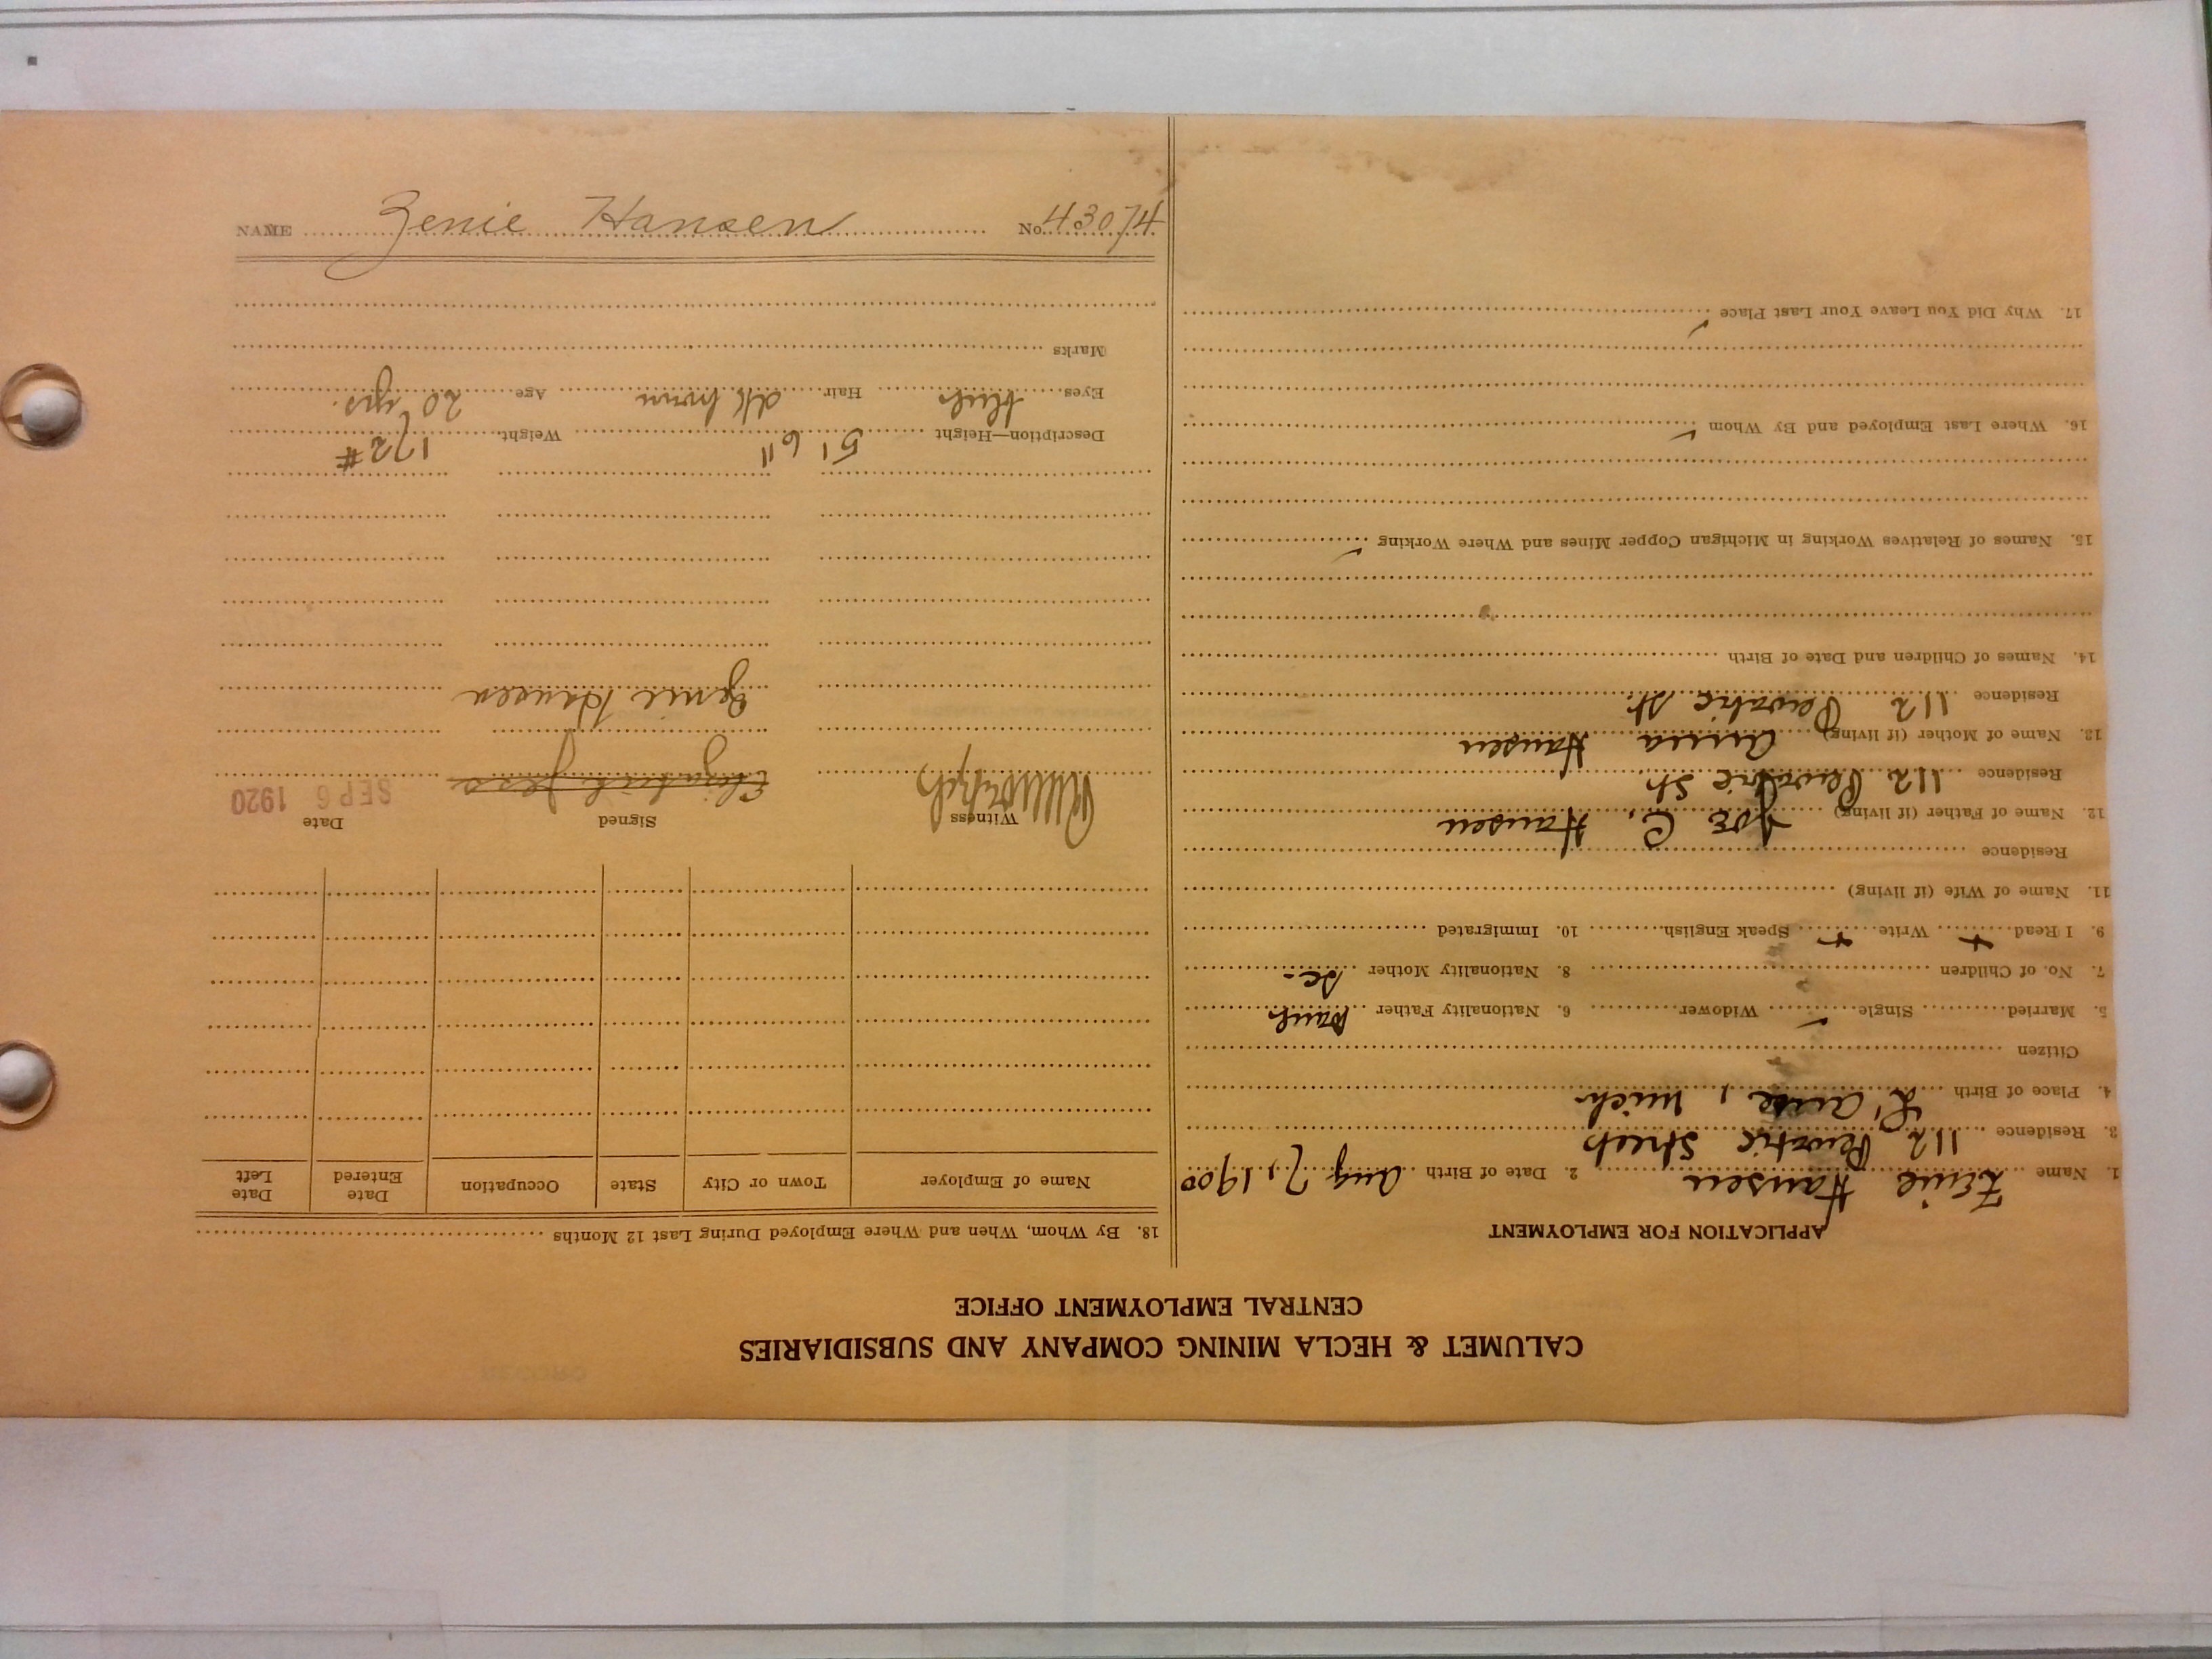 CALUMET & HECLA MINING COMPANY AND SUBSIDIARIES
CENTRAL EMPLOYMENT OFFICE
APPLICATION FOR EMPLOYMENT
1. Name Zenie Hansen 2. Date of Birth Aug 7, 1900
3. Residence 112 Pewabic Street
4. Place of Birth L'anse, Mich
Citizen
5. Married Single ✓ Widower 6. Nationality Father Danish
7. No. of Children 8. Nationality Mother do-
9. I Read + Write + Speak English 10. Immigrated
11. Name of Wife (if living)
Residence
12. Name of Father (if living) Joe C. Hansen
Residence 112 Pewabic St.
13. Name of Mother (if living) Anna Hansen
Residence 112 Pewabic St.
14. Names of Children and Date of Birth
15. Names of Relatives Working in Michigan Copper Mines and Where Working ✓
16. Where Last Employed and By Whom ✓
17. Why Did You Leave Your Last Place ✓
18. By Whom, When and Where Employed During Last 12 Months
Name of Employer Town or City State Occupation Date Entered Date Left
Witness Signed Date
Elizabeth SEP 6 1920
Zenie Hansen
Description—Height 5' 6" Weight 172 #
Eyes blue Hair dk brown Age 20 yrs.
Marks
NAME Zenie Hansen No. 43074